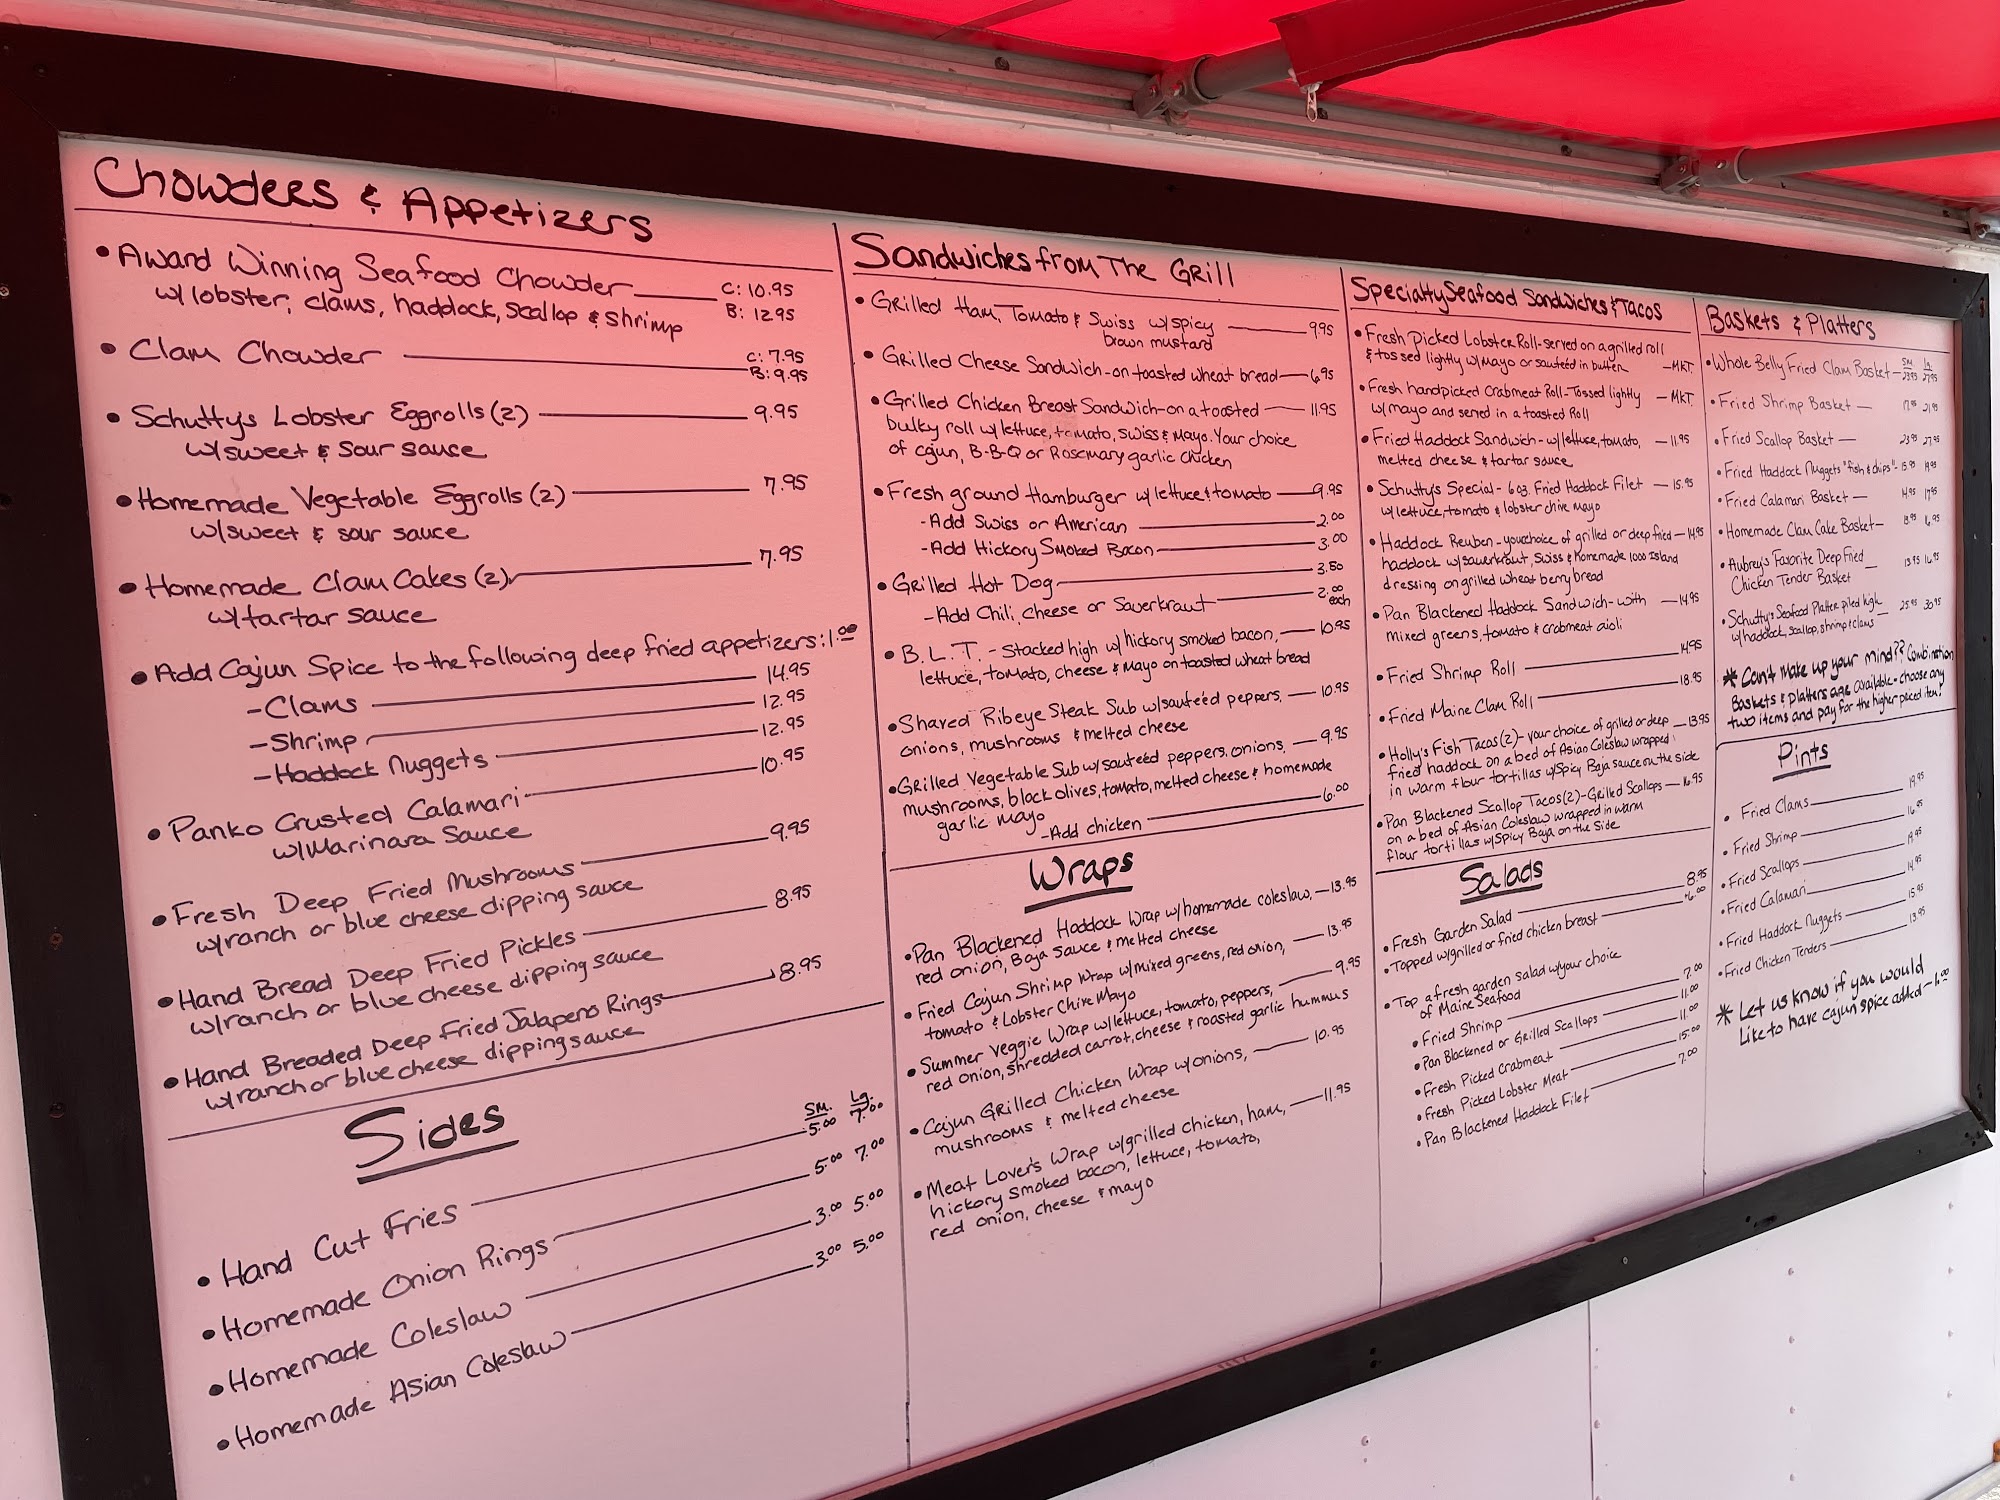 Chowders & Appetizers
• Award Winning Seafood Chowder C: 10.95
w/ lobster, clams, haddock, scallop & shrimp B: 12.95
• Clam Chowder C: 7.95
B: 9.95
• Schutty's Lobster Eggrolls (2) 9.95
w/sweet & sour sauce
• Homemade Vegetable Eggrolls (2) 7.95
w/sweet & sour sauce
• Homemade Clam Cakes (2) 7.95
w/tartar sauce
• Add Cajun Spice to the following deep fried appetizers: 1.00
- Clams 14.95
- Shrimp 12.95
- Haddock Nuggets 12.95
• Panko Crusted Calamari 10.95
w/Marinara Sauce
• Fresh Deep Fried Mushrooms 9.95
w/ranch or blue cheese dipping sauce
• Hand Bread Deep Fried Pickles 8.95
w/ranch or blue cheese dipping sauce
• Hand Breaded Deep Fried Jalapeno Rings 8.95
w/ranch or blue cheese dipping sauce
Sides
SM. Lg.
• Hand Cut Fries 5.00 7.00
• Homemade Onion Rings 5.00 7.00
• Homemade Coleslaw 3.00 5.00
• Homemade Asian Coleslaw 3.00 5.00
Sandwiches from The Grill
• Grilled Ham, Tomato & Swiss w/spicy 9.95
brown mustard
• Grilled Cheese Sandwich - on toasted wheat bread 6.95
• Grilled Chicken Breast Sandwich - on a toasted 11.95
bulky roll w/lettuce, tomato, swiss & Mayo. Your choice
of cajun, B-B-Q or Rosemary garlic chicken
• Fresh ground Hamburger w/lettuce & tomato 9.95
- Add Swiss or American 2.00
- Add Hickory Smoked Bacon 3.00
• Grilled Hot Dog 3.50
- Add Chili, cheese or Sauerkraut 2.00 each
• B.L.T. - Stacked high w/hickory smoked bacon, 10.95
lettuce, tomato, cheese & Mayo on toasted wheat bread
• Shaved Ribeye Steak Sub w/sautéed peppers, 10.95
onions, mushrooms & melted cheese
• Grilled Vegetable Sub w/sautéed peppers, onions, 9.95
mushrooms, black olives, tomato, melted cheese & homemade
garlic mayo
- Add chicken 6.00
Wraps
• Pan Blackened Haddock Wrap w/homemade coleslaw, 13.95
red onion, Baja sauce & melted cheese
• Fried Cajun Shrimp Wrap w/mixed greens, red onion, 13.95
tomato & Lobster Chive Mayo
• Summer Veggie Wrap w/lettuce, tomato, peppers, 9.95
red onion, shredded carrot, cheese & roasted garlic hummus
• Cajun Grilled Chicken Wrap w/onions, 10.95
mushrooms & melted cheese
• Meat Lover's Wrap w/grilled chicken, ham, 11.95
hickory smoked bacon, lettuce, tomato,
red onion, cheese & mayo
Specialty Seafood Sandwiches & Tacos
• Fresh Picked Lobster Roll - served on a grilled roll
& tossed lightly w/Mayo or sautéed in butter - MKT.
• Fresh handpicked Crabmeat Roll - Tossed lightly - MKT.
w/mayo and served in a toasted Roll
• Fried Haddock Sandwich - w/lettuce, tomato, - 11.95
melted cheese & tartar sauce
• Schutty's Special - 6oz. Fried Haddock Filet - 15.95
w/lettuce, tomato & lobster chive mayo
• Haddock Reuben - your choice of grilled or deep fried - 14.95
haddock w/sauerkraut, Swiss & Homemade 1000 Island
dressing on grilled wheat berry bread
• Pan Blackened Haddock Sandwich - with - 14.95
mixed greens, tomato & crabmeat aioli
• Fried Shrimp Roll 14.95
• Fried Maine Clam Roll 18.95
• Holly's Fish Tacos (2) - your choice of grilled or deep - 13.95
fried haddock on a bed of Asian Coleslaw wrapped
in warm flour tortillas w/Spicy Baja sauce on the side
• Pan Blackened Scallop Tacos (2) - Grilled Scallops - 16.95
on a bed of Asian Coleslaw wrapped in warm
flour tortillas w/Spicy Baja on the Side
Salads
• Fresh Garden Salad 8.95
• Topped w/grilled or fried chicken breast +6.00
• Top a fresh garden salad w/your choice
of Maine Seafood
• Fried Shrimp 7.00
• Pan Blackened or Grilled Scallops 11.00
• Fresh Picked Crabmeat 11.00
• Fresh Picked Lobster Meat 15.00
• Pan Blackened Haddock Filet 7.00
Baskets & Platters
SM Lg
• Whole Belly Fried Clam Basket - 23.95 27.95
• Fried Shrimp Basket - 17.95 21.95
• Fried Scallop Basket - 23.95 27.95
• Fried Haddock Nuggets "fish & chips" - 15.95 19.95
• Fried Calamari Basket - 14.95 17.95
• Homemade Clam Cake Basket - 13.95 16.95
• Aubrey's Favorite Deep Fried 13.95 16.95
Chicken Tender Basket
• Schutty's Seafood Platter piled high 25.95 30.95
w/haddock, scallop, shrimp & clams
* Can't make up your mind?? Combination
Baskets & Platters are available - choose any
two items and pay for the higher priced item!
Pints
• Fried Clams 19.95
• Fried Shrimp 16.95
• Fried Scallops 19.95
• Fried Calamari 14.95
• Fried Haddock Nuggets 15.95
• Fried Chicken Tenders 13.95
* Let us know if you would
like to have cajun spice added - 1.00